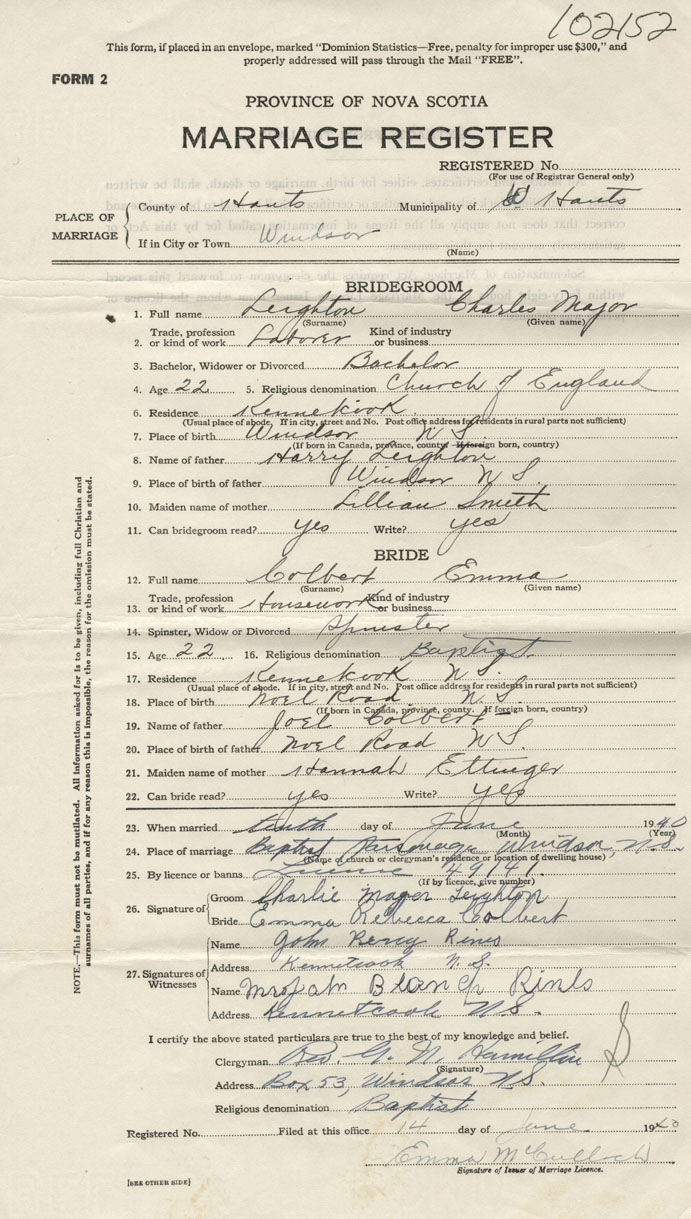 102152
This form, if placed in an envelope, marked "Dominion Statistics—Free, penalty for improper use $300," and
properly addressed will pass through the Mail "FREE".
FORM 2
PROVINCE OF NOVA SCOTIA
MARRIAGE REGISTER
REGISTERED No.
(For use of Registrar General only)
PLACE OF MARRIAGE
County of Hants Municipality of W Hants
If in City or Town Windsor
(Name)
BRIDEGROOM
1. Full name Leighton Charles Major
(Surname) (Given name)
2. Trade, profession or kind of work Laborer Kind of industry or business
3. Bachelor, Widower or Divorced Bachelor
4. Age 22 5. Religious denomination Church of England
6. Residence Kennekook
(Usual place of abode. If in city, street and No. Post office address for residents in rural parts not sufficient)
7. Place of birth Windsor N S
(If born in Canada, province, county. If foreign born, country)
8. Name of father Harry Leighton
9. Place of birth of father Windsor N S
10. Maiden name of mother Lillian Smith
11. Can bridegroom read? yes Write? yes
BRIDE
12. Full name Colbert Emma
(Surname) (Given name)
13. Trade, profession or kind of work Housework Kind of industry or business
14. Spinster, Widow or Divorced Spinster
15. Age 22 16. Religious denomination Baptist
17. Residence Kennekook N S.
(Usual place of abode. If in city, street and No. Post office address for residents in rural parts not sufficient)
18. Place of birth Noel Road N. S.
(If born in Canada, province, county. If foreign born, country)
19. Name of father Joel Colbert
20. Place of birth of father Noel Road N S.
21. Maiden name of mother Hannah Ettinger
22. Can bride read? yes Write? yes
23. When married tenth day of June 1940
(Month) (Year)
24. Place of marriage Baptist Parsonage Windsor, N.S.
(Name of church or clergyman's residence or location of dwelling house)
25. By licence or banns Licence 49141
(If by licence, give number)
26. Signature of Groom Charlie Mager Leighton
Bride Emma Rebecca Colbert
27. Signatures of Witnesses
Name John Percy Rines
Address Kennetcook N. S.
Name Mrs John Blanch Rines
Address Kennetcook N.S.
I certify the above stated particulars are true to the best of my knowledge and belief.
Clergyman Rev. G. N. Hamilton
(Signature)
Address Box 53, Windsor N.S.
Religious denomination Baptist
Registered No. Filed at this office 14 day of June 1940
Emma McCulloch
Signature of Issuer of Marriage Licence.
[SEE OTHER SIDE]
NOTE.—This form must not be mutilated. All information asked for is to be given, including full Christian and
surnames of all parties, and if for any reason this is impossible, the reason for the omission must be stated.